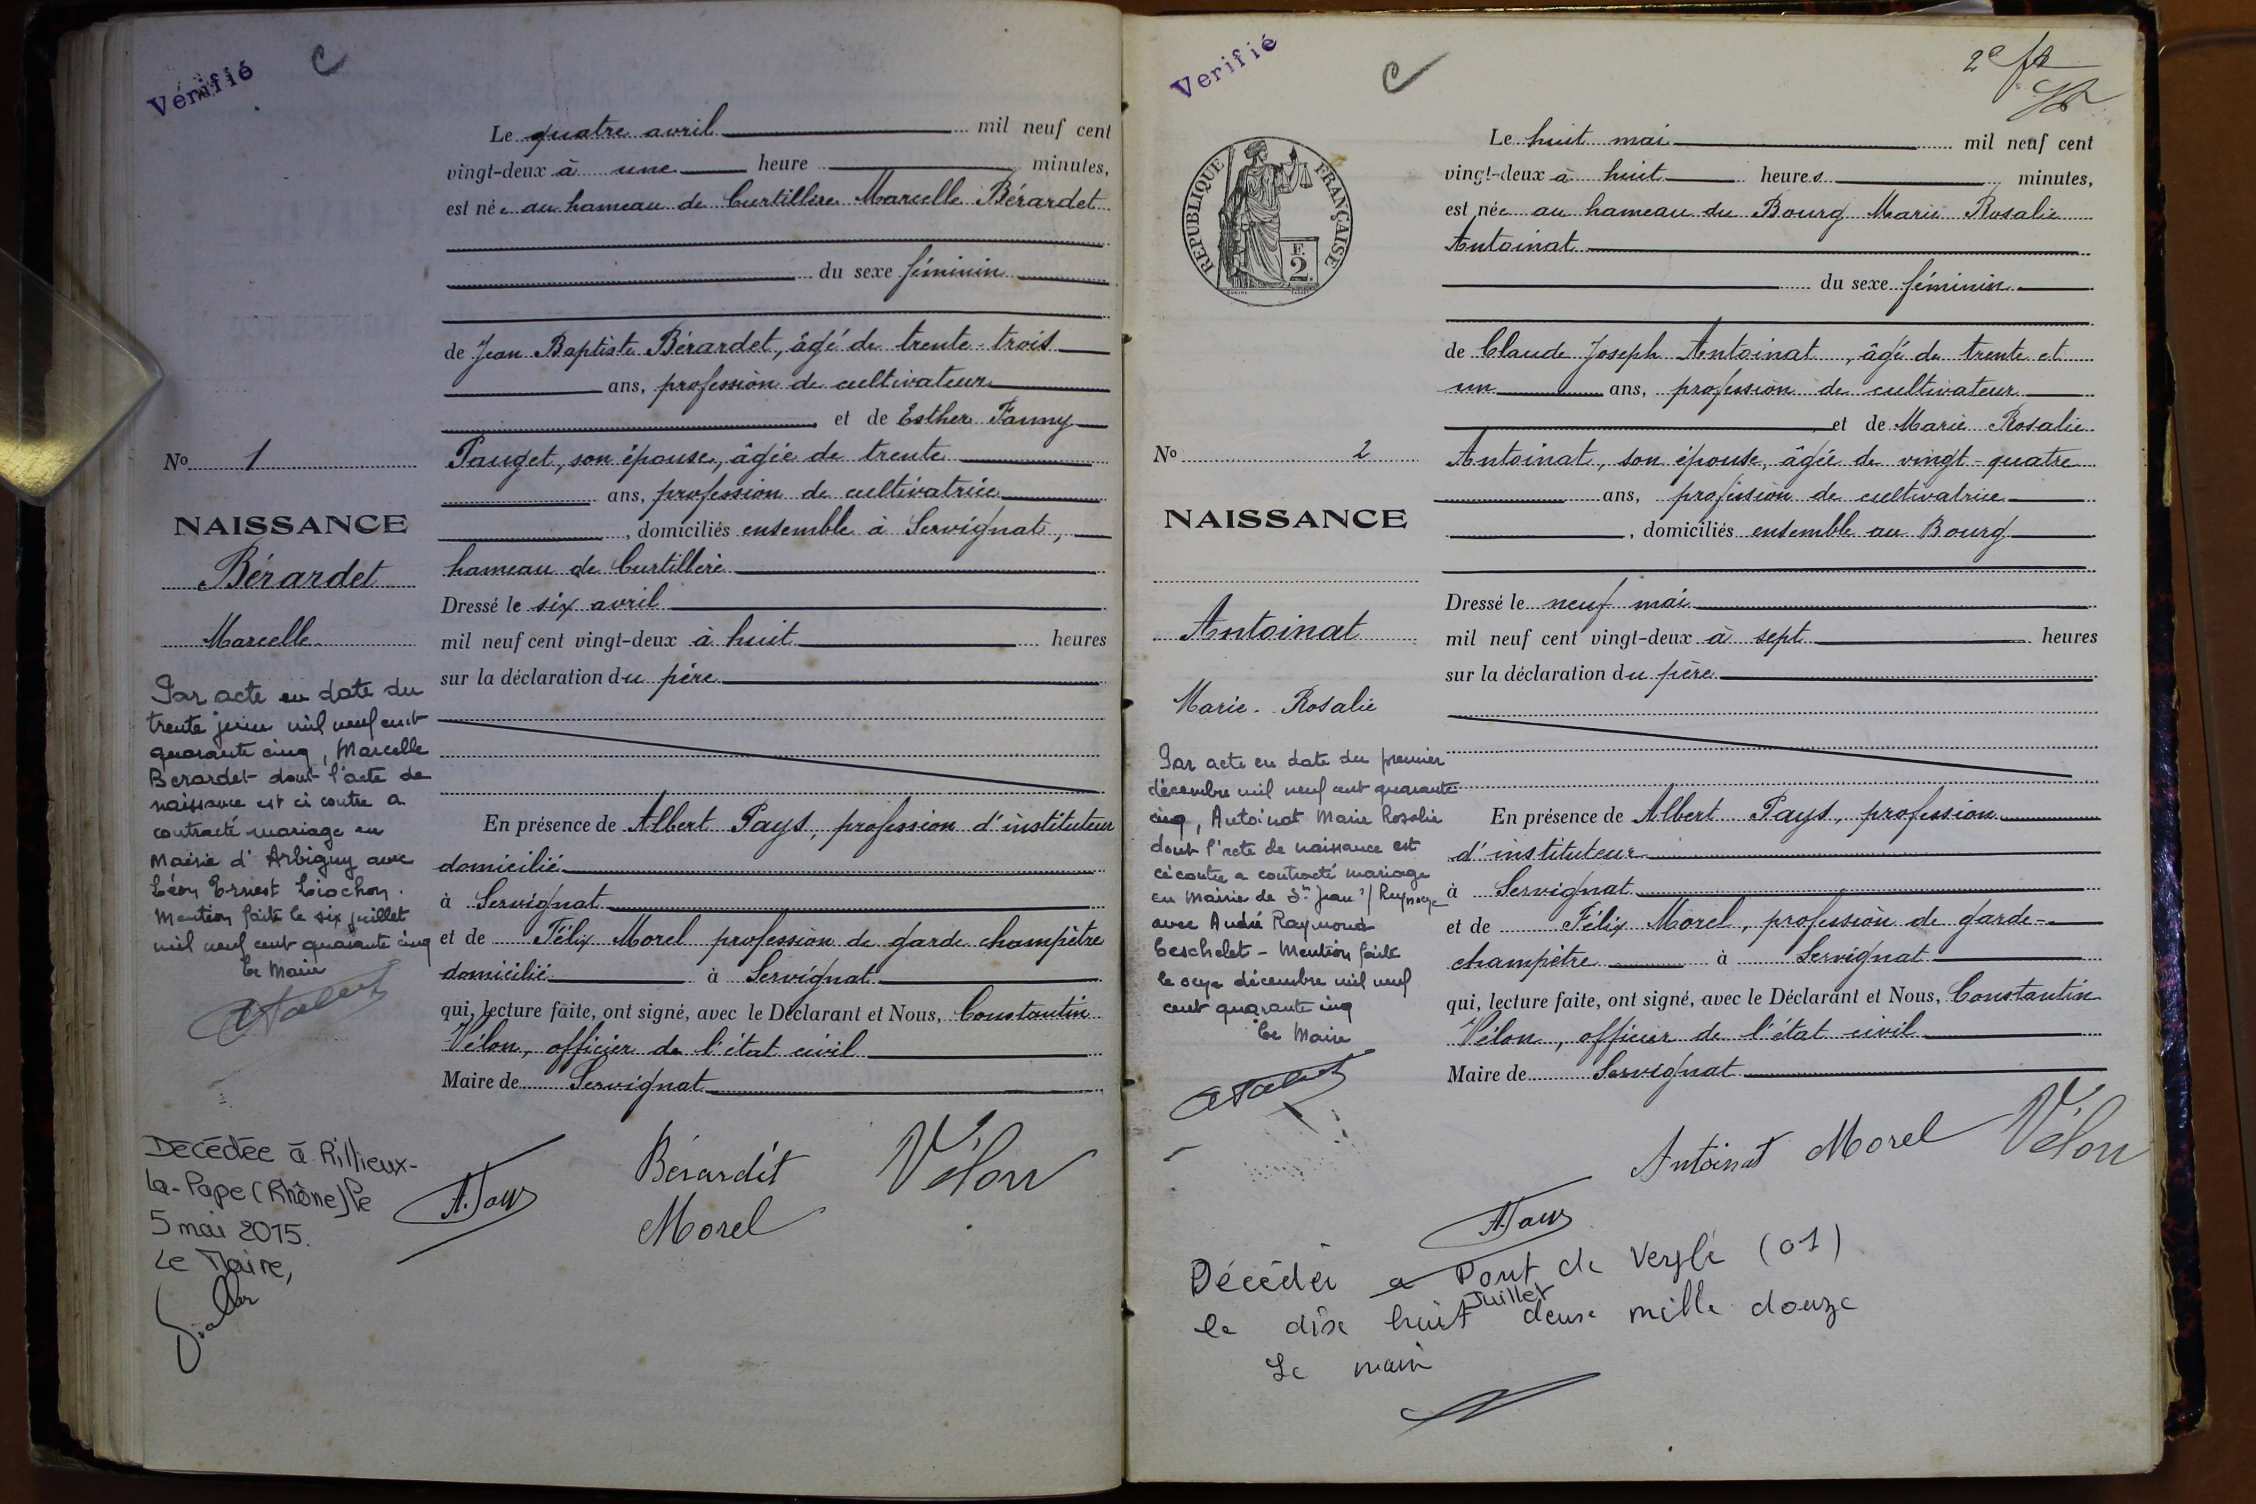 Vérifié
C
Le quatre avril mil neuf cent
vingt-deux à une heure minutes,
est née au hameau de Curtillère Marcelle Bérardet
du sexe féminin
de Jean Baptiste Bérardet, âgé de trente-trois
ans, profession de cultivateur
et de Esther Fanny
No 1
Pauget, son épouse, âgée de trente
ans, profession de cultivatrice
NAISSANCE
, domiciliés ensemble à Servignat,
Bérardet
hameau de Curtillère
Dressé le six avril
Marcelle
mil neuf cent vingt-deux à huit heures
sur la déclaration du père
Par acte en date du
trente juin mil neuf cent
quarante cinq, Marcelle
Berardet dont l'acte de
naissance est ci contre a
contracté mariage en
Mairie d'Arbigny avec
Léon Ernest Liochon.
Mention faite le six juillet
mil neuf cent quarante cinq
Le Maire
En présence de Albert Pays, profession d'instituteur
domicilié
à Servignat
et de Félix Morel profession de garde champêtre
domicilié à Servignat
qui, lecture faite, ont signé, avec le Déclarant et Nous, Constantin
Vélon, officier de l'état civil
Maire de Servignat
Décédée à Rillieux-
La-Pape (Rhône) le
5 mai 2015.
Le Maire,
A. Pays
Bérardet
Morel
Vélon
Verifié
C
2e
RÉPUBLIQUE FRANÇAISE
F.
2
Le huit mai mil neuf cent
vingt-deux à huit heures minutes,
est née au hameau du Bourg Marie Rosalie
Antoinat
du sexe féminin
de Claude Joseph Antoinat, âgé de trente et
un ans, profession de cultivateur
et de Marie Rosalie
No 2
Antoinat, son épouse, âgée de vingt-quatre
ans, profession de cultivatrice
NAISSANCE
, domiciliés ensemble au Bourg
Dressé le neuf mai
Antoinat
mil neuf cent vingt-deux à sept heures
sur la déclaration du père
Marie-Rosalie
Par acte en date du premier
décembre mil neuf cent quarante
cinq, Antoinat Marie Rosalie
dont l'acte de naissance est
ci contre a contracté mariage
en Mairie de St Jean s/ Reyssouze
avec André Raymond
Ceschelet - Mention faite
le onze décembre mil neuf
cent quarante cinq
Le Maire
En présence de Albert Pays, profession
d'instituteur
à Servignat
et de Félix Morel, profession de garde-
champêtre à Servignat
qui, lecture faite, ont signé, avec le Déclarant et Nous, Constantin
Vélon, officier de l'état civil
Maire de Servignat
Antoinat Morel Vélon
A. Pays
Décédée a Pont de Veyle (01)
le dix huit Juillet deux mille douze
Le maire